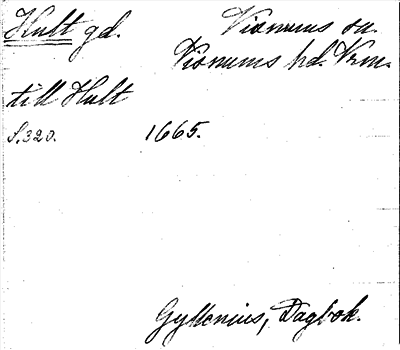 Hult gd.
Visnums sn.
Visnums hd. Vrm.
till Hult
S. 320.
1665.
Gyllenius, Dagbok.